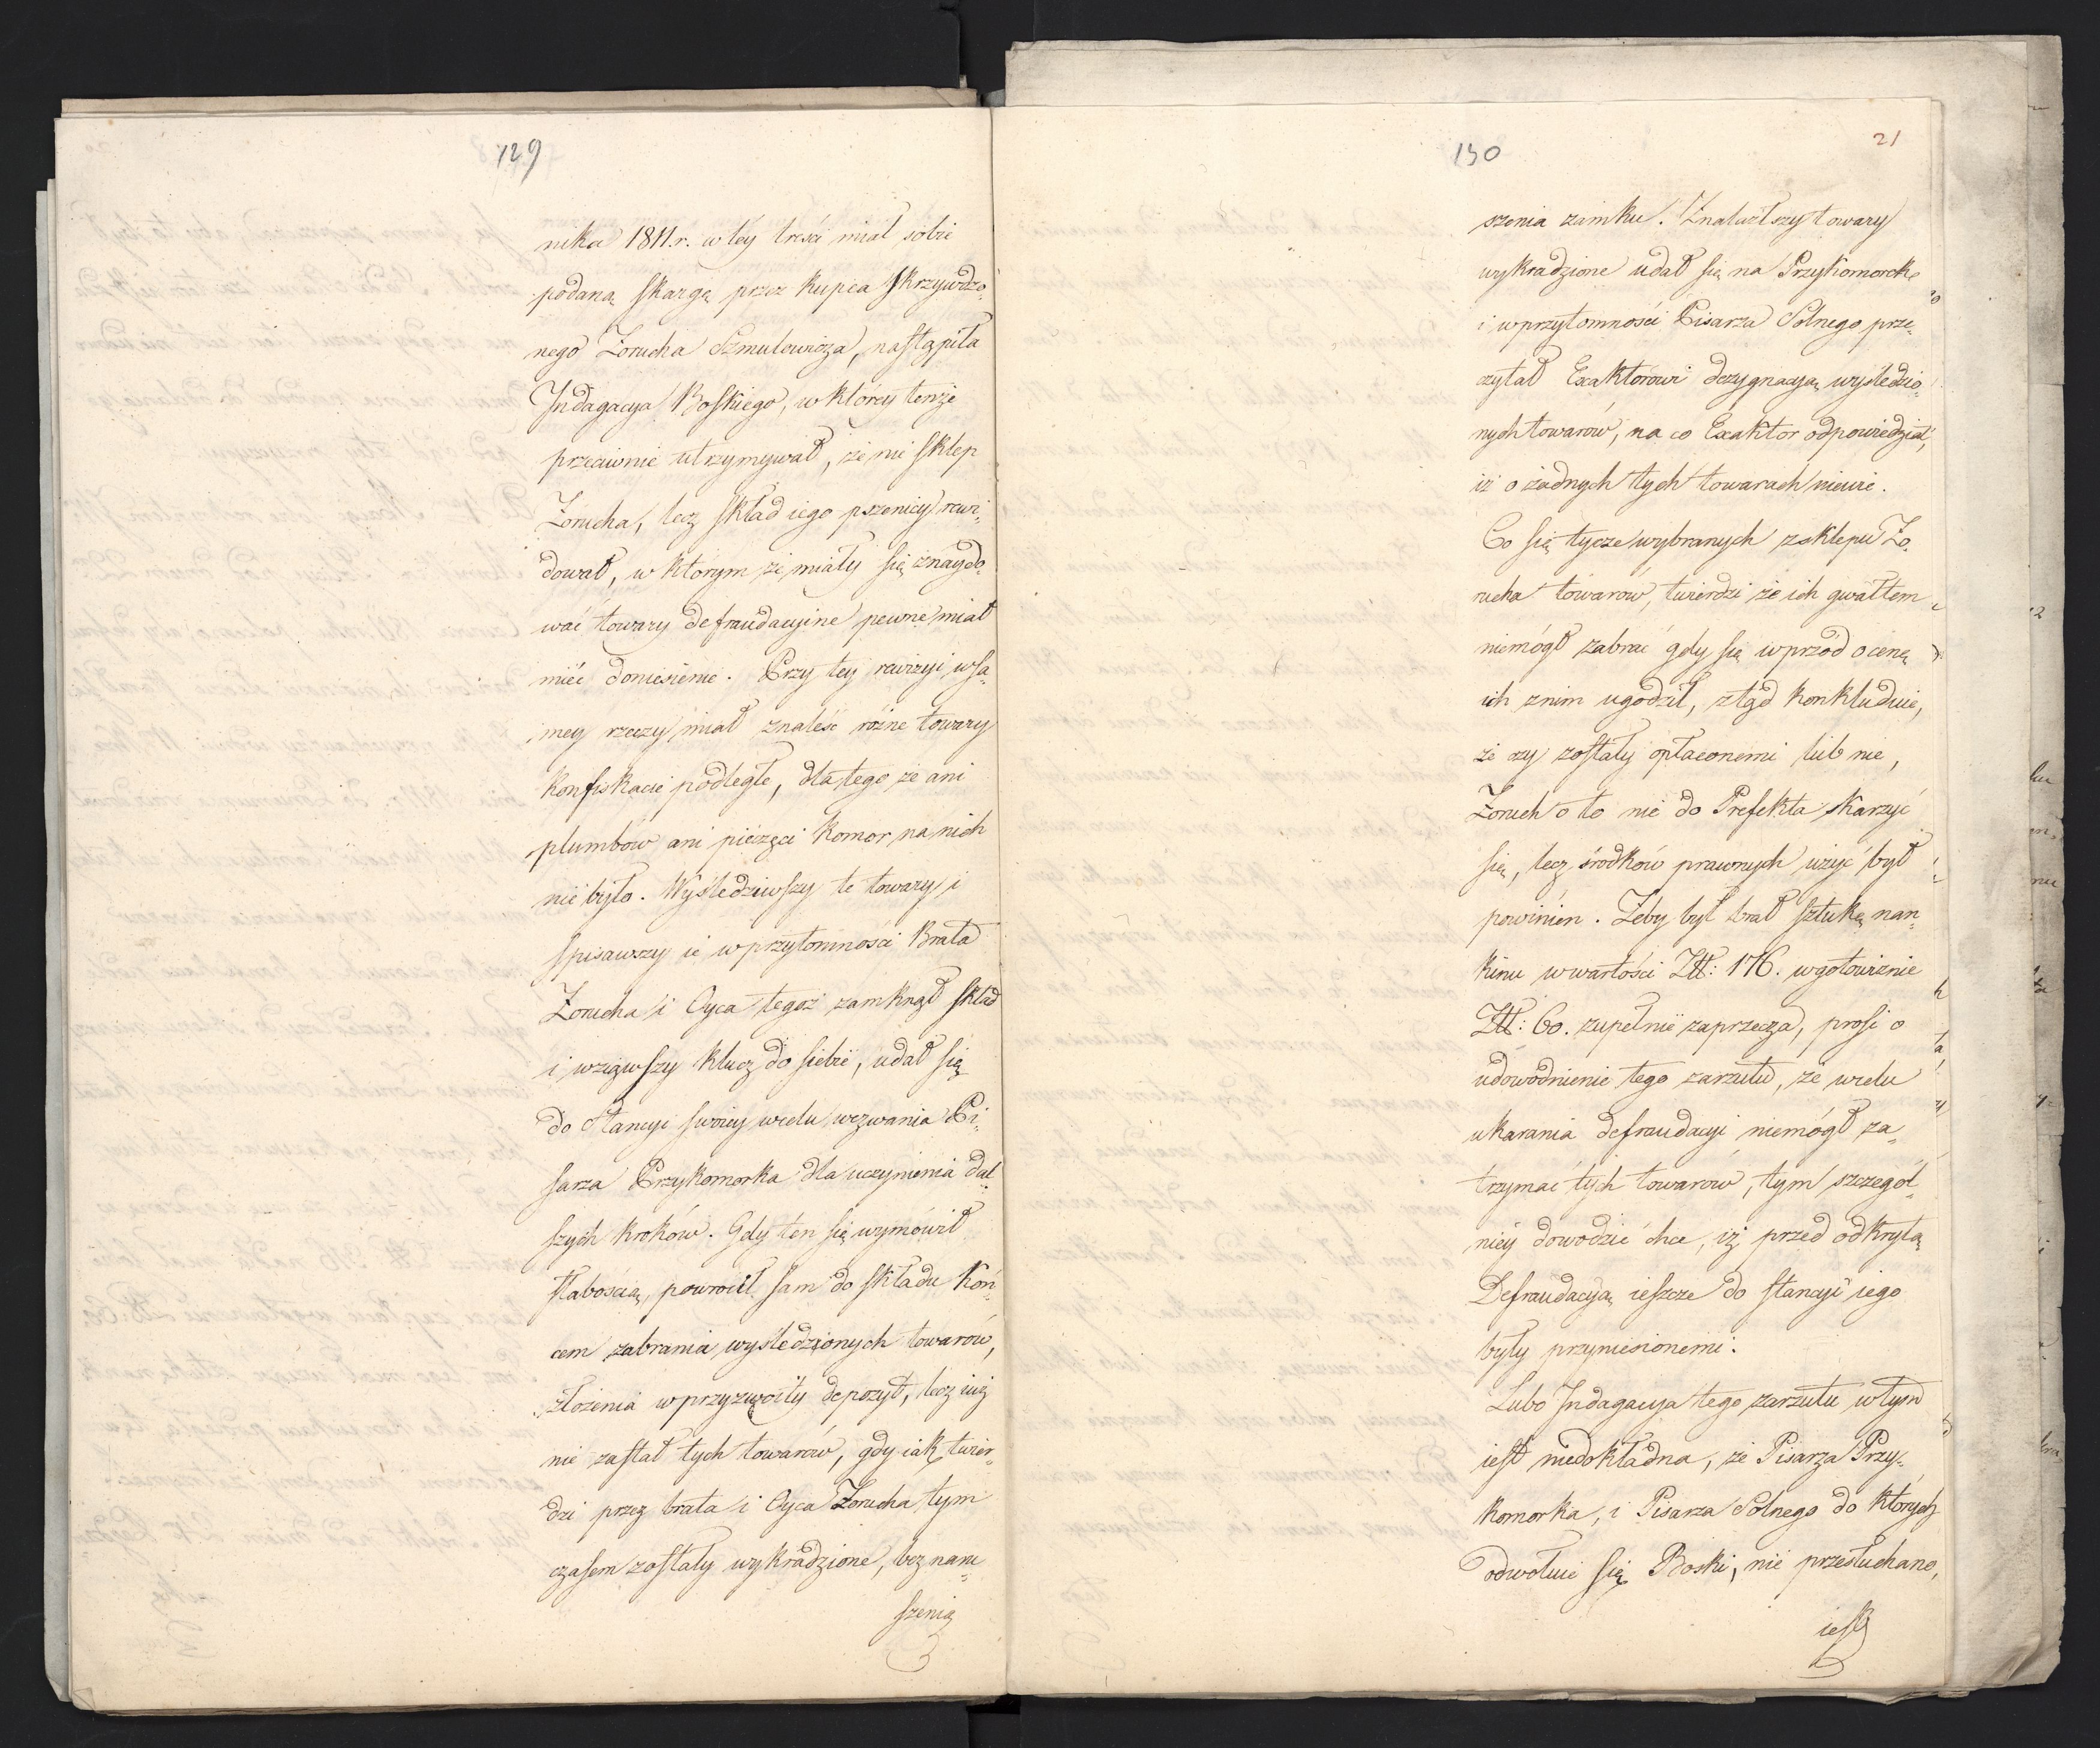 129
nika 1811.r. w tey treści miał sobie
podaną skargę przez Kupca skrzywdzo„
nego Zorucha Szmulewicza, nastąpiła
Indagacya Boskiego, w którey tenże
przeciwnie utrzymywał, że nie sklep
Zorucha, lecz skład iego pszenicy rewi„
dował, w którym że miały się znaydo„
wać towary defraudacyine pewne miał
mieć doniesienie. Przy tey rewizyi w sa„
mey rzeczy miał znaleść różne towary
konfiskacie podległe, dla tego że ani
plumbów ani pieczęci Komor na nich
nie było. Wyśledziwszy te towary i
spisawszy ie w przytomności Brata
Zorucha i Oyca tegoż zamknął skład
i wziąwszy klucz do siebie, udał się
do Stancyi swoiey wcelu wezwania Pi„
sarza Przykomorka dla uczynienia dal„
szych kroków. Gdy ten się wymówił
słabością, powrócił sam do składu koń„
cem zabrania wyśledzionych towarów,
złożenia w przyzwoity depozyt, lecz iuż
nie zastał tych towarów, gdy iak twier„
dzi przez brata i Oyca Zorucha tym
czasem zostały wykradzione, bez naru„
szenia
130
21
szenia zamku. Znalazłszy towary
wykradzione udał się na Przykomorek
i w przytomności Pisarza Solnego prze„
czytał Exaktorowi dezygnacyą wyśledzio„
nych towarów, na co Exaktor odpowiedział,
iż o żadnych tych towarach niewie.
Co się tycze wybranych z sklepu Zo„
rucha towarów, twierdzi że ich gwałtem
niemógł zabrać gdy się wprzód o cenę
ich z nim ugodził, ztąd konkluduie,
że czy zostały opłaconemi lub nie,
Zoruch o to nie do Prefekta skarzyć
się, lecz środków prawnych użyć był
powinien. Żeby był brał sztukę nan„
kinu w wartości Zł: 176. w gotowiznie
Zł: 60. zupełnie zaprzecza, prosi o
udowodnienie tego zarzutu, że wcelu
ukarania defraudacyi niemógł za„
trzymać tych towarów, tym szczegól„
niey dowodzić chce, iż przed odkrytą
Defraudacyą ieszcze do stancyi iego
były przyniesionemi.
Lubo Indagacya tego zarzutu w tym
iest niedokładna, że Pisarza Przy„
komorka, i Pisarza Solnego do których
odwołuie się Boski, nie przesłuchano,
iest